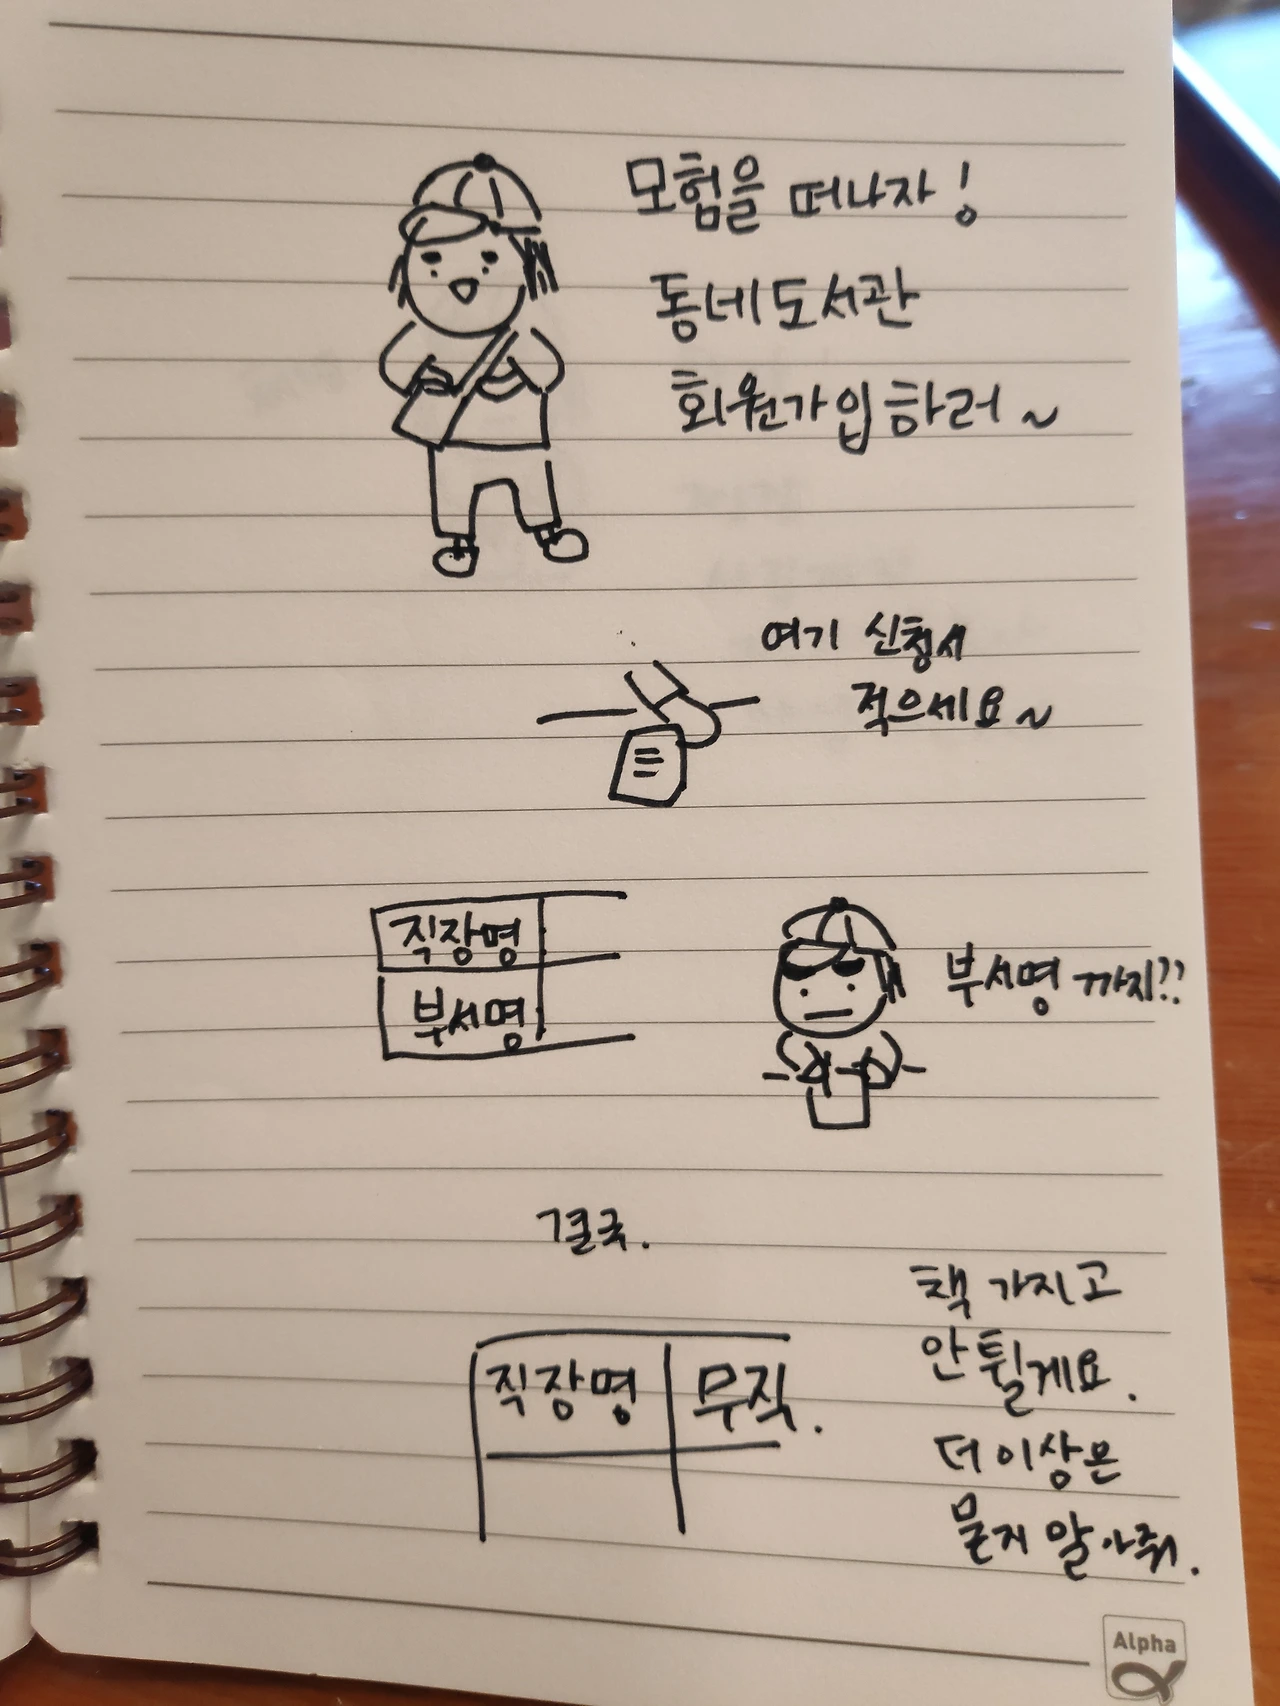 모험을 떠나자!
동네도서관
회원가입하러~
여기 신청서
적으세요~
직장명
부서명
부서명까지??
결국.
직장명 무직.
책 가지고
안 튈게요.
더 이상은
묻지 말아줘.
Alpha